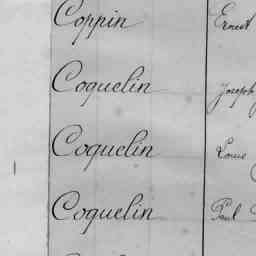 Coppin Ernest
Coquelin Joseph
Coquelin Louise
Coquelin Paul